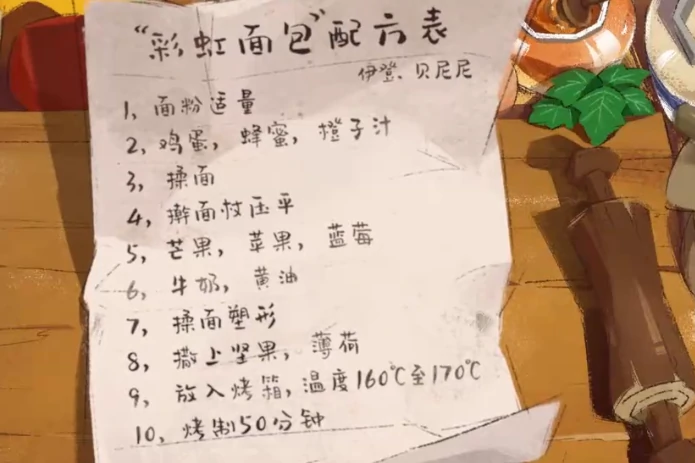 “彩虹面包”配方表
伊登、贝尼尼
1, 面粉适量
2, 鸡蛋, 蜂蜜, 橙子汁
3, 揉面
4, 擀面杖压平
5, 芒果, 苹果, 蓝莓
6, 牛奶, 黄油
7, 揉面塑形
8, 撒上坚果, 薄荷
9, 放入烤箱, 温度160℃至170℃
10, 烤制50分钟